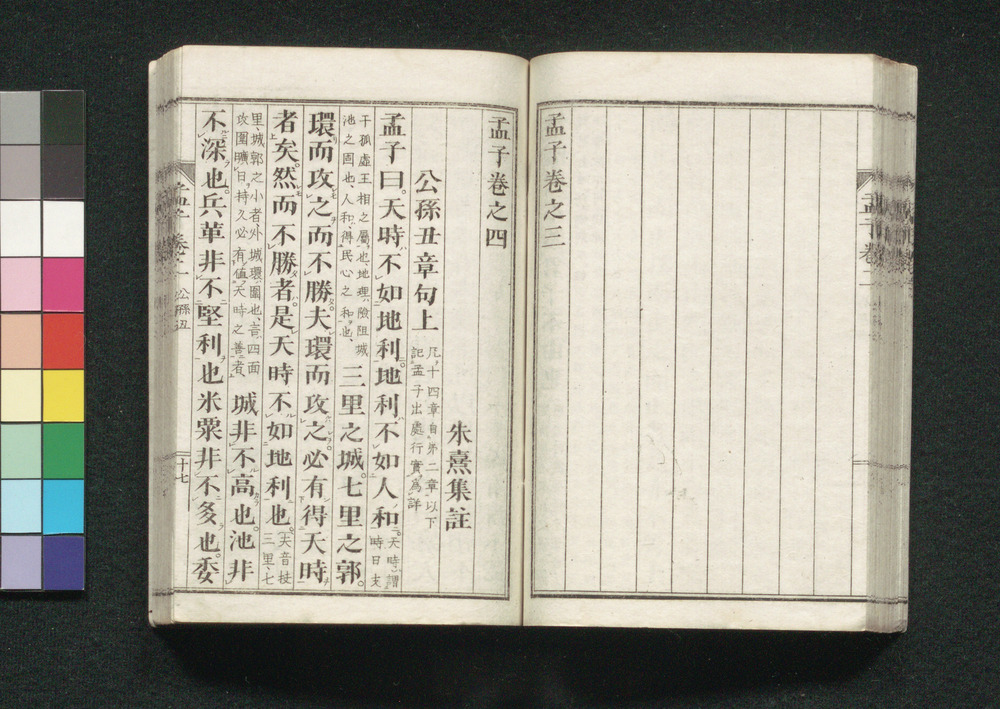 孟子卷之三
孟子卷之四
朱熹集註
公孫丑章句上
凡十四章自第二章以下
記孟子出處行實為詳
孟子曰。天時不如地利。地利不如人和。
天時謂
時日支
干孤虛王相之屬也、地理、險阻城
池之固也、人和、得民心之和也、
三里之城。七里之郭。
環而攻之而不勝。夫環而攻之。必有得天時
者矣。然而不勝者。是天時不如地利也。
夫音扶
三里、七
里、城郭之小者外城環圍也、言四面
攻圍曠日持久必有値天時之善者、
城非不高也。池非
不深也。兵革非不堅利也米粟非不多也。委
公孫丑
十七